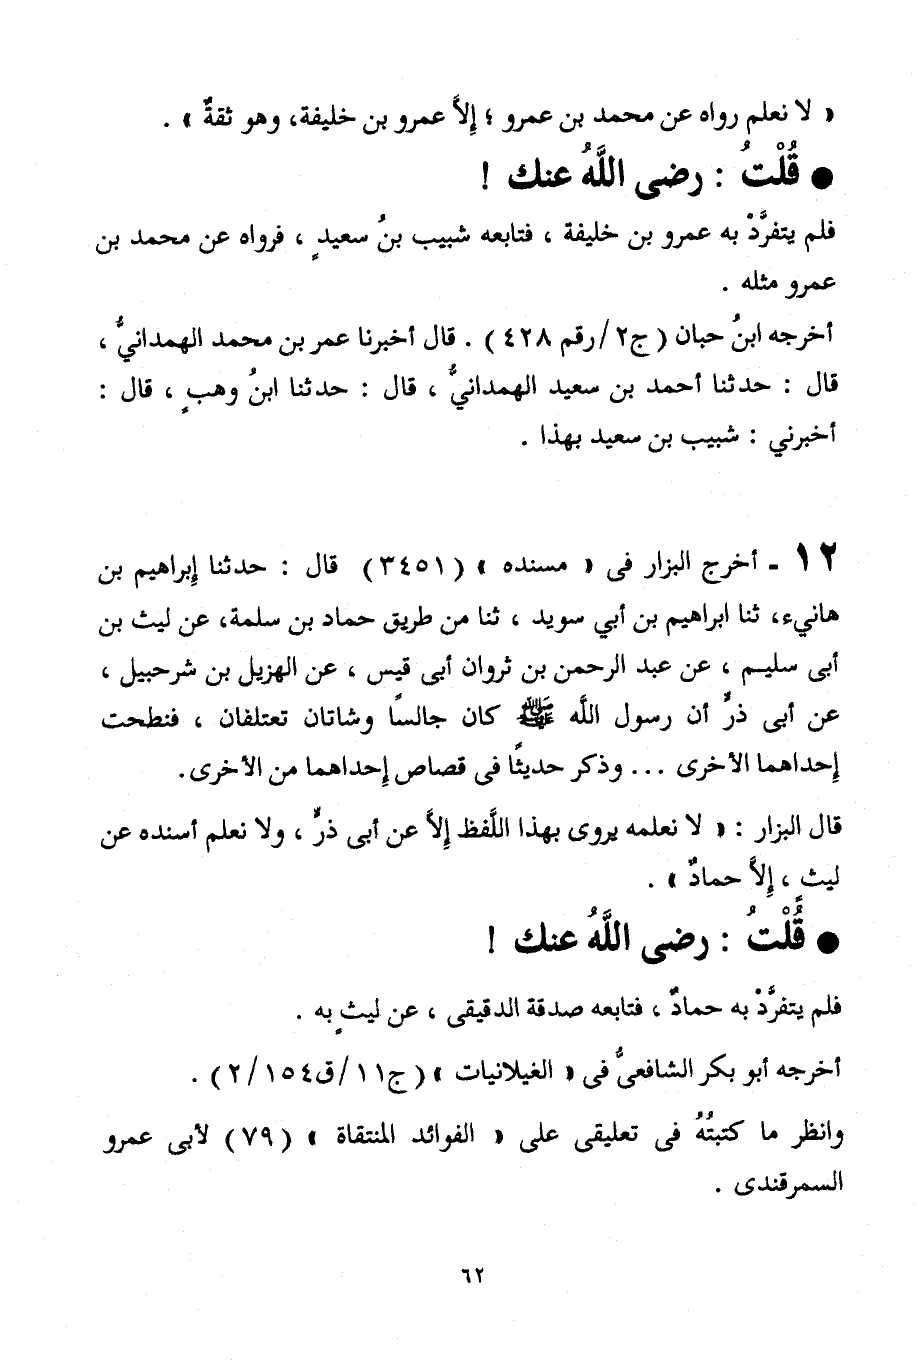 « لا نعلم رواه عن محمد بن عمرو ؛ إلاَّ عمرو بن خليفة، وهو ثقةٌ » .
● قُلْتُ : رضى اللَّهُ عنك !
فلم يتفرَّدْ به عمرو بن خليفة ، فتابعه شبيب بنُ سعيدٍ ، فرواه عن محمد بن
عمرو مثله .
أخرجه ابنُ حبان ( ج٢/رقم ٤٢٨ ) . قال أخبرنا عمر بن محمد الهمدانيُّ ،
قال : حدثنا أحمد بن سعيد الهمدانيُّ ، قال : حدثنا ابنُ وهبٍ ، قال :
أخبرني : شبيب بن سعيد بهذا .
١٢ - أخرج البزار فى « مسنده » ( ٣٤٥١ ) قال : حدثنا إبراهيم بن
هانيء، ثنا ابراهيم بن أبي سويد ، ثنا من طريق حماد بن سلمة، عن ليث بن
أبى سليم ، عن عبد الرحمن بن ثروان أبى قيس ، عن الهزيل بن شرحبيل ،
عن أبى ذرٍّ أن رسول الله ﷺ كان جالسًا وشاتان تعتلفان ، فنطحت
إحداهما الأخرى ... وذكر حديثًا فى قصاص إحداهما من الأخرى.
قال البزار : « لا نعلمه يروى بهذا اللَّفظ إلاَّ عن أبى ذرٍّ ، ولا نعلم أسنده عن
ليثٍ ، إلاَّ حمادٌ » .
● قُلْتُ : رضى اللَّهُ عنك !
فلم يتفرَّدْ به حمادٌ ، فتابعه صدقة الدقيقى ، عن ليثٍ به .
أخرجه أبو بكر الشافعىُّ فى « الغيلانيات » ( ج١١/ق١٥٤/٢ ) .
وانظر ما كتبتُهُ فى تعليقى على « الفوائد المنتقاة » ( ٧٩ ) لأبى عمرو
السمرقندى .
٦٢